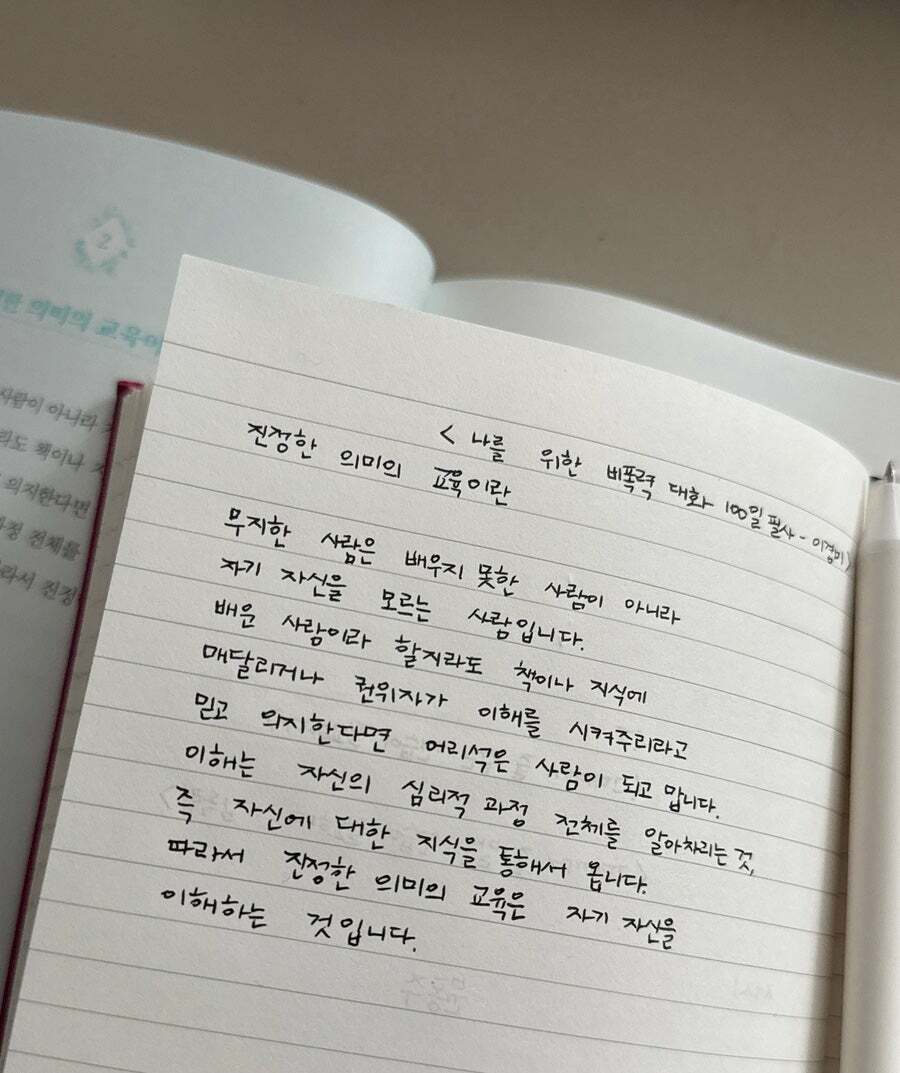 2
의미의 교육이
사람이 아니라
라도 책이나
의지한다면
과정 전체를
라서 진정
< 나를 위한 비폭력 대화 100일 필사 - 이경미 >
진정한 의미의 교육이란
무지한 사람은 배우지 못한 사람이 아니라
자기 자신을 모르는 사람입니다.
배운 사람이라 할지라도 책이나 지식에
매달리거나 권위자가 이해를 시켜주리라고
믿고 의지한다면 어리석은 사람이 되고 맙니다.
이해는 자신의 심리적 과정 전체를 알아차리는 것,
즉 자신에 대한 지식을 통해서 옵니다.
따라서 진정한 의미의 교육은 자기 자신을
이해하는 것입니다.